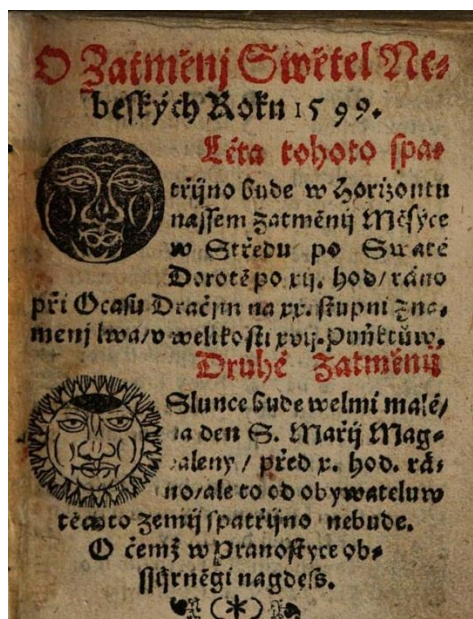 O Zatměnj Swětel Ne⸗
beských Roku 1599.
Léta tohoto spa⸗
třijno bude w Horizontu
nassem Zatměnij Měsýce
w Středu po Swaté
Dorotě po xij. hod/ ráno
při Ocasu Dračjm na xx. stupni Zna⸗
menj lwa/ v welikosti xvij. Punktůw.
Druhé Zatměnij
Slunce bude welmi malé/
na den S. Mařij Mag⸗
daleny / před x. hod. rá⸗
no/ ale to od obywateluw
těchto Zemij spatřijno nebude.
O čemž w Pranostyce ob⸗
ssýrněgi nagdess.
(*)